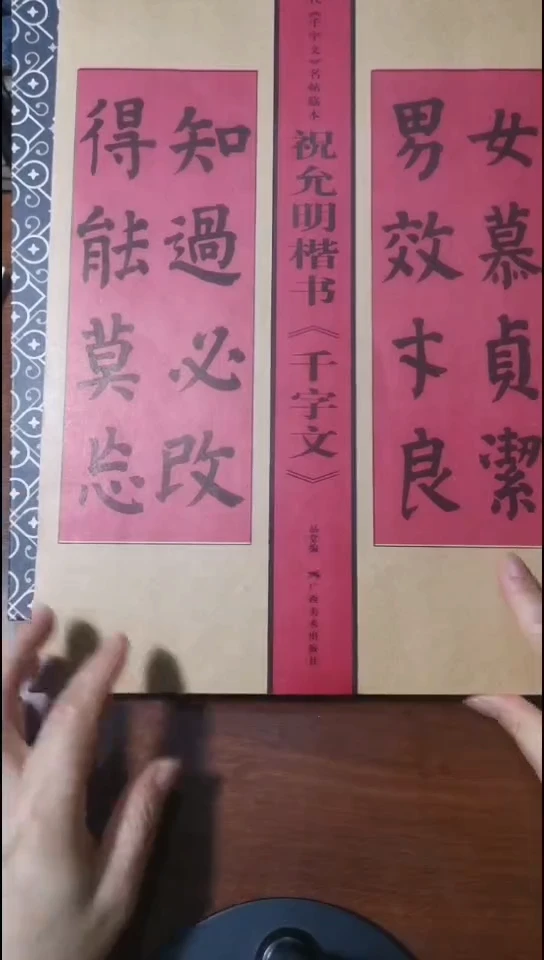 女慕貞潔
男效才良
代《千字文》名帖临本
祝允明楷书《千字文》
广西美术出版社
知過必改
得能莫忘